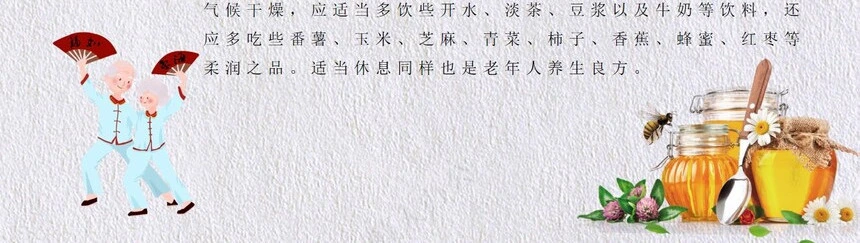 气候干燥，应适当多饮些开水、淡茶、豆浆以及牛奶等饮料，还
应多吃些番薯、玉米、芝麻、青菜、柿子、香蕉、蜂蜜、红枣等
柔润之品。适当休息同样也是老年人养生良方。